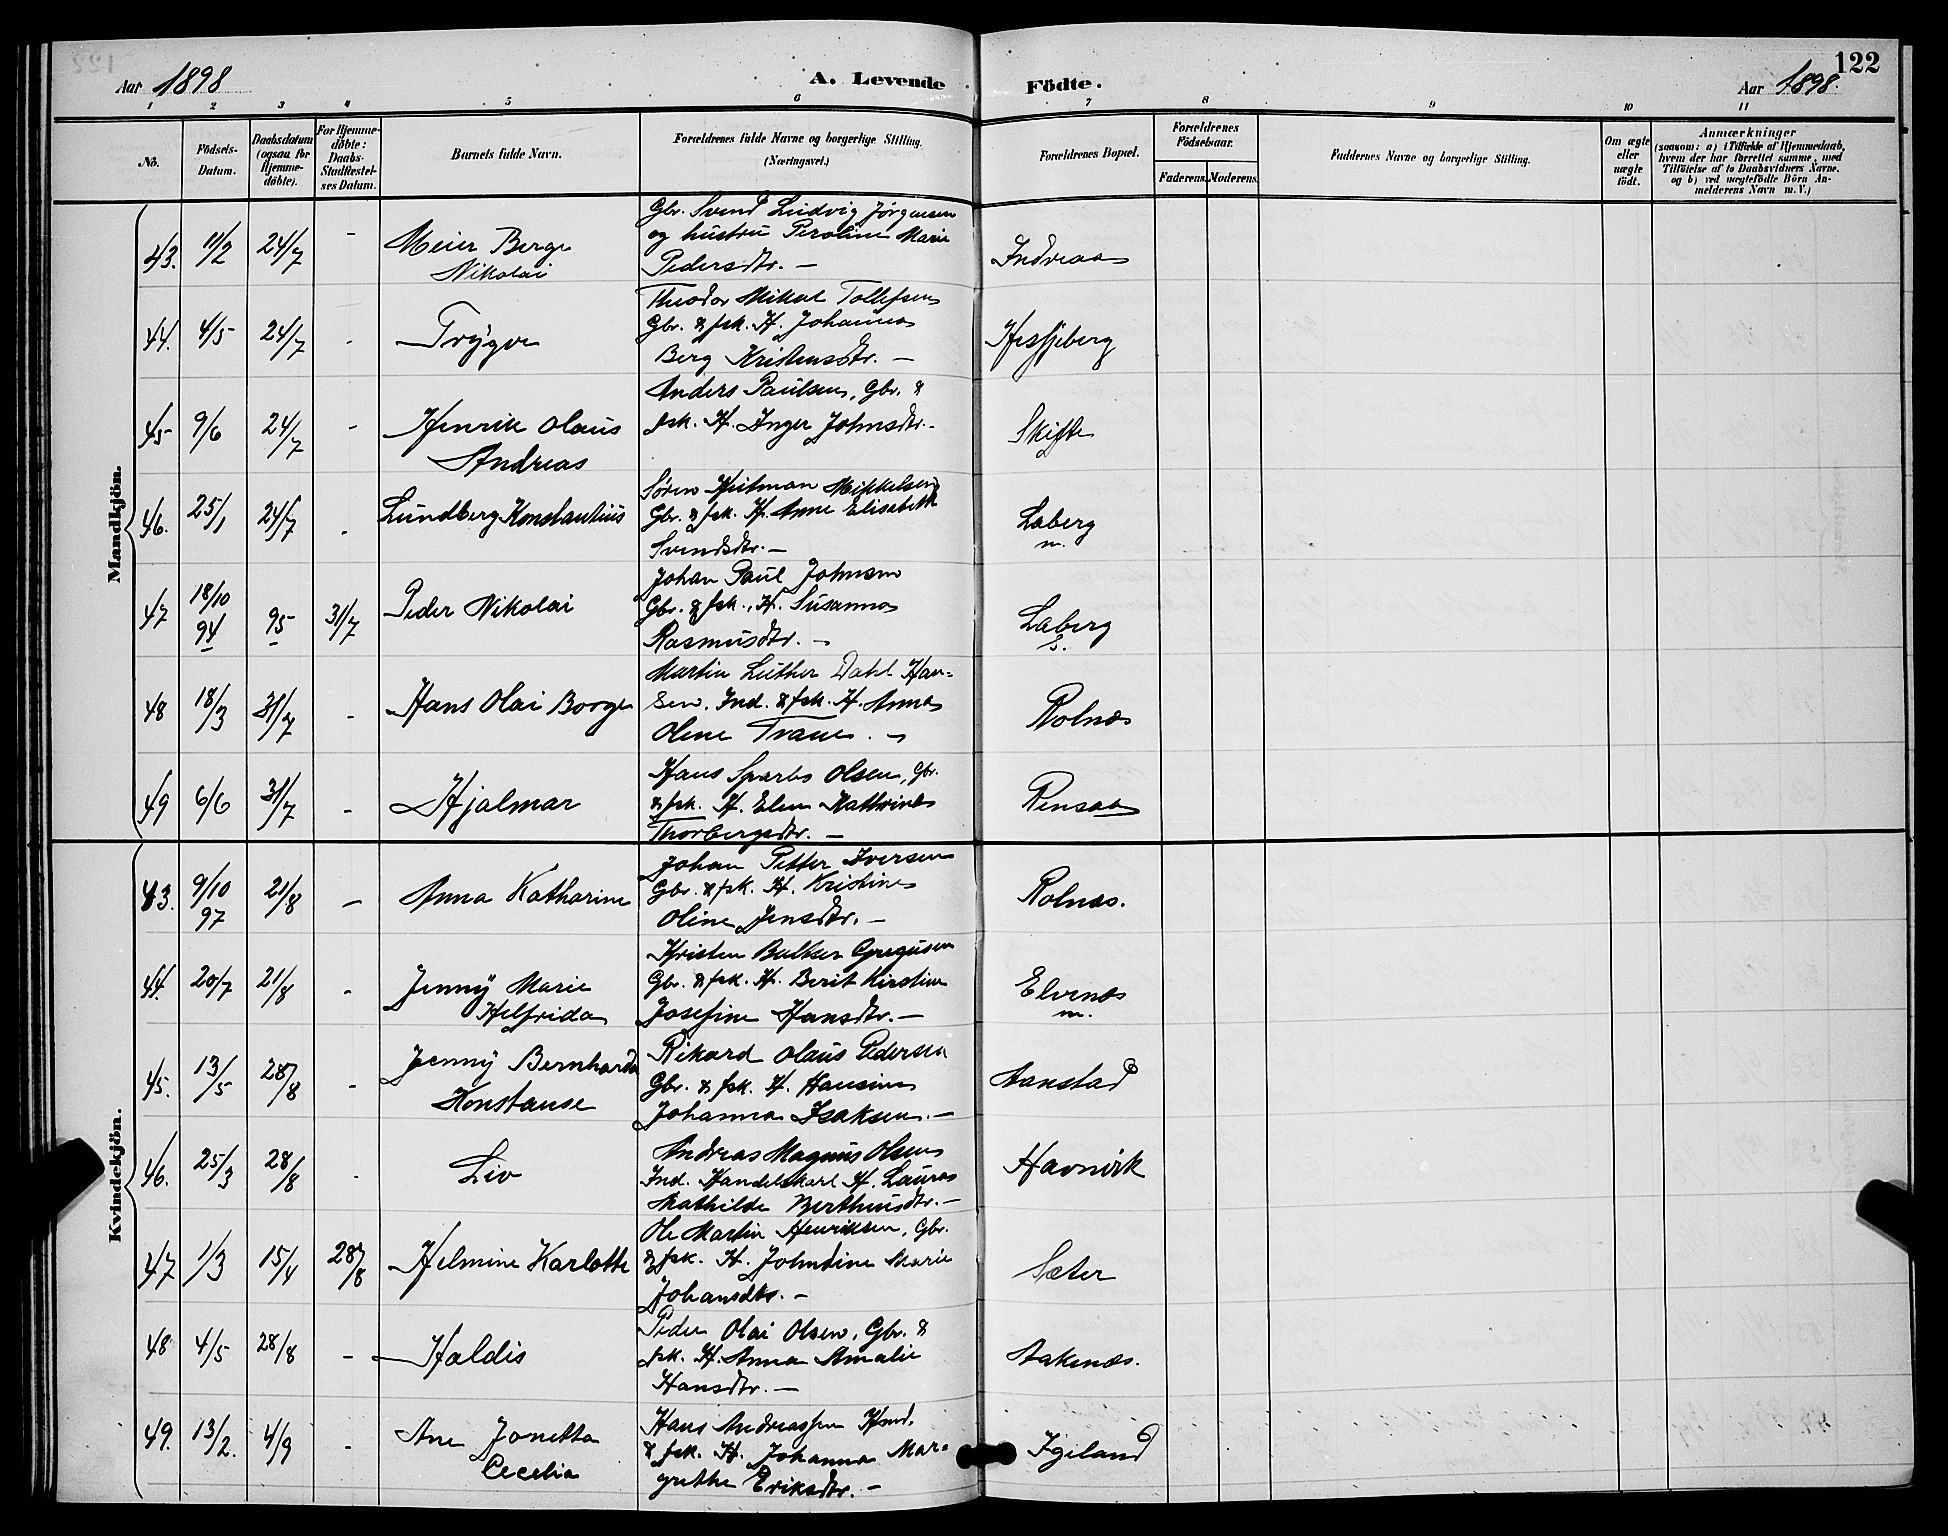 122
Aar 1898
A. Levende Födte.
Aar 1898.
1 2 3 4 5 6 7 8 9 10 11
Nö.
Födsels-Datum.
Daabsdatum (ogsaa for Hjemme-döbte).
For Hjemme-döbte: Daabs-Stadfæstel-ses Datum.
Barnets fulde Navn.
Forældrenes fulde Navne og borgerlige Stilling. (Næringsvei.)
Forældrenes Bopæl.
Forældrenes Födselsaar.
Faderens. Moderens.
Faddernes Navne og borgerlige Stilling.
Om ægte eller uægte födt.
Anmærkninger (saasom: a) i Tilfælde af Hjemmedaab, hvem der har forrettet samme, med Tilföielse af to Daabsvidners Navne, og b) ved uægtefödte Börn An-melderens Navn m. V.)
Mandkjön.
43. 11/2 24/7 - Meier Berge Nikolai
Gbr. Svend Ludvig Jørgensen
og hustru Peroline Marie
Pedersdtr. —
Indreaa
44. 4/5 24/7 - Trygve
Theodor Mikal Tollefsen
Gbr. & fsk. H. Johanna
Berg Kristensdtr. —
Hesjeberg
45 9/6 24/7 - Henrik Olaus Andreas
Anders Paulsen, Gbr. &
fsk. H. Inger Johnsdtr. -
Skifte
46. 25/1 24/7 - Lundberg Konstantius
Søren Heitman Mikkelsen
Gbr. & fsk. H. Anne Elisabeth
Svendsdtr. —
Laberg m.
47 18/10 94 95 31/7 Peder Nikolai
Johan Paul Johnsen
Gbr. & fsk., H. Susanna
Rasmusdtr. —
Laberg S.
48 18/3 31/7 - Hans Olai Borge
Martin Luther Dahl Han-
sen. Ind. & fsk. H. Anna
Oline Trane. -
Rolnæs
49 6/6 31/7 - Hjalmar
Hans Sparbo Olsen, Gbr.
& fsk. H. Elen Kathrine
Thorbergsdtr. —
Rensaa
Kvindekjön.
43. 9/10 97 21/8 - Anna Katharine
Johan Petter Iversen
Gbr. & fsk. H. Kristine
Oline Jensdtr. —
Rolnæs.
44. 20/7 21/8 - Jenny Marie Helfrida
Kristen Baltser Gregusen
Gbr. & fsk. H. Berit Kirstine
Josefine Hansdtr. —
Elvenæs m.
45. 13/5 28/8 - Jenny Bernharda Konstanse
Rikard Olaus Pedersen
Gbr. & fsk. H. Hansine
Johanna Isaksen. —
Aanstad
46. 25/3 28/8 - Liv
Andreas Magnus Olsen
Ind. Handelskarl H. Laura
Mathilde Berthusdtr. —
Havnvik
47 1/3 15/4 28/8 Helmine Karlotte
Ole Martin Henriksen, Gbr.
& fsk. H. Johndine Marie
Johansdtr. —
Sæter
48 4/5 28/8 - Haldis
Peder Olai Olsen, Gbr. &
fsk. H. Anna Amalie
Hansdtr. —
Aakenæs.
49. 13/2. 4/9 - Ane Jonetta Cecelia
Hans Andreassen Hmd.
& fsk. H. Johanna Mar-
grethe Eriksdtr. —
Igeland